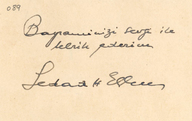 089
Bayramınızı saygı ile
tebrik ederim
Sedat H Eldem